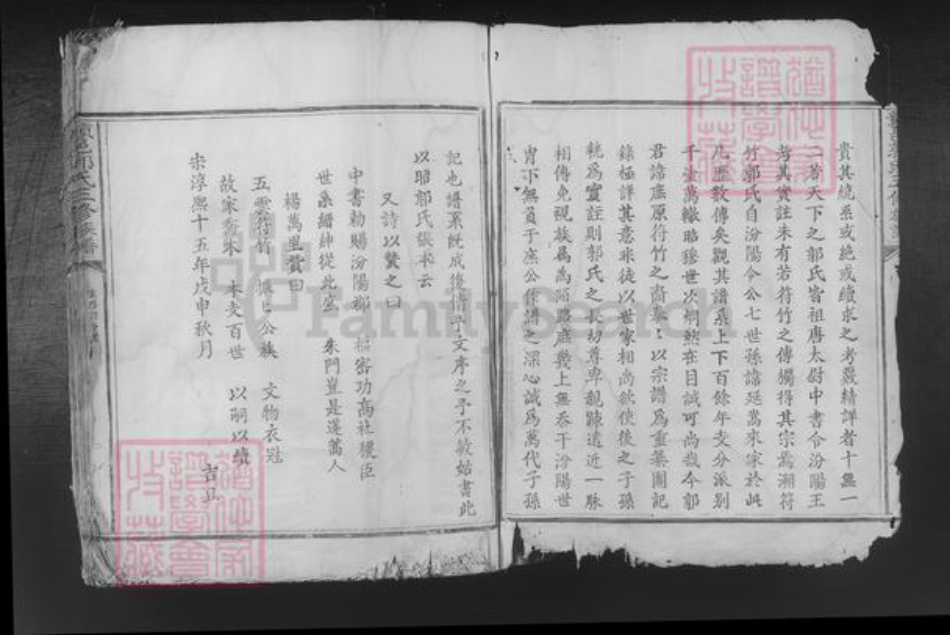 貴其統系或絶或續求之考嚴精詳者十無一
二若天下之郭氏皆祖唐太尉中書令汾陽王
考其實註未有若符竹之傳獨得其宗焉溯符
竹郭氏自汾陽令公七世孫諱延嵩來家於此
凡歷數傳矣觀其譜系上下百餘年支分派别
千塗萬轍昭穆世次炯然在目誠可尚哉今郭
君諱應原符竹之裔以宗譜為重纂圖記
錄極詳其意非徒以世家相尚欲使後之子孫
執為實註則郭氏之長幼尊卑親疎遠近一脉
相傳免視族為陌路庶幾上無忝于汾陽世
胄下無負于庶公修譜之深心誠為萬代子孫
記也譜系既成復傳予文序之予不敏姑書此
以昭郭氏張本云
又詩以贊之曰
中書勅賜汾陽郡 樞密功高社稷臣
世系縉紳從此盛 朱門豈是蓬蒿人
楊萬里贊曰
五雲符竹 公族 文物衣冠
故家喬木 本支百世 以嗣以續
宋淳熙十五年戊申秋月 吉旦
郭氏三修族譜
FamilySearch
譜學會
收藏
譜學會
收藏